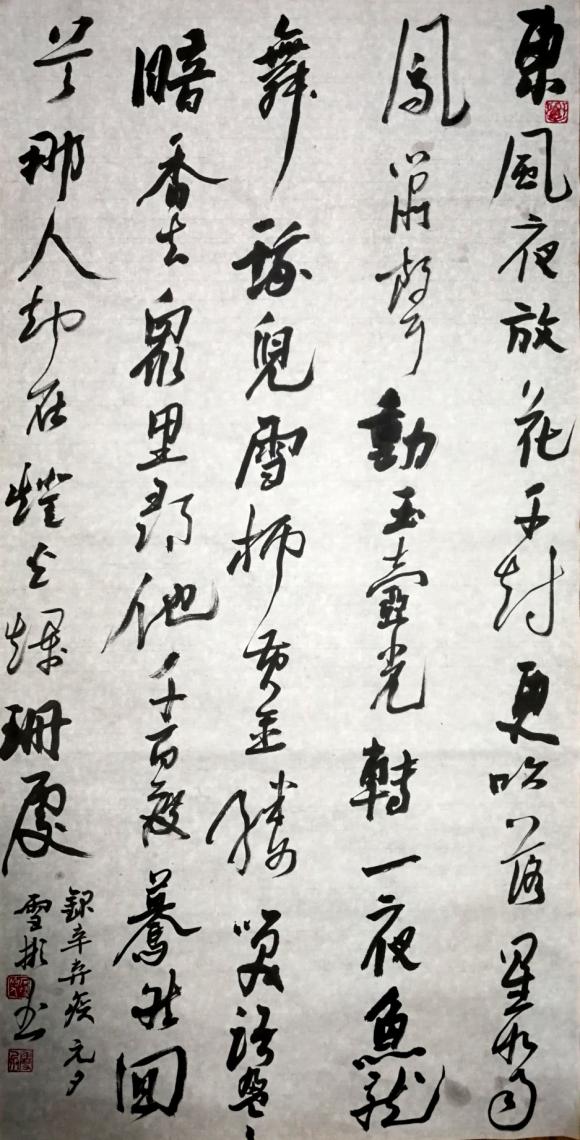 東風夜放花千树更吹落星如雨
鳳簫聲動玉壺光轉一夜魚龍
舞蛾兒雪柳黄金縷笑語盈盈
暗香去衆里尋他千百度驀然回
首那人却在燈火爛珊處
録辛弃疾元夕
雪彬书